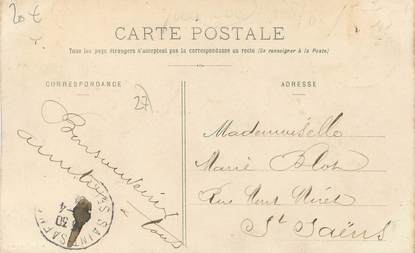 20 €
CARTE POSTALE
Tous les pays étrangers n'acceptent pas la correspondance au recto (Se renseigner à la Poste)
CORRESPONDANCE
ADRESSE
27
Bon souvenir
à tous
Mademoiselle
Marie Blot
Rue
St Saëns
30
4